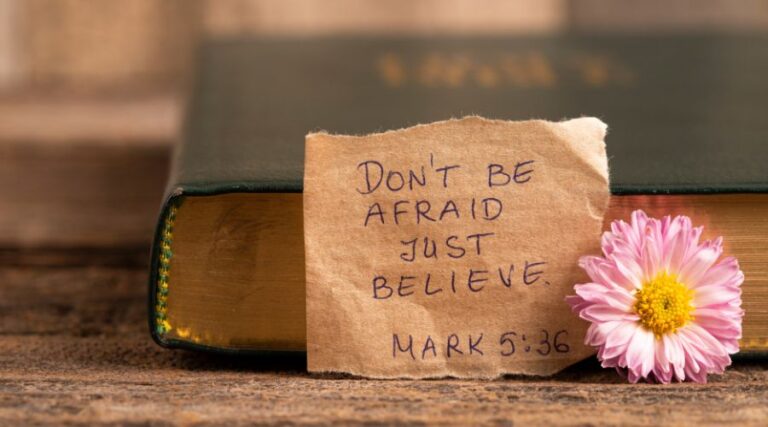 DON'T BE
AFRAID
JUST
BELIEVE.
MARK 5:36